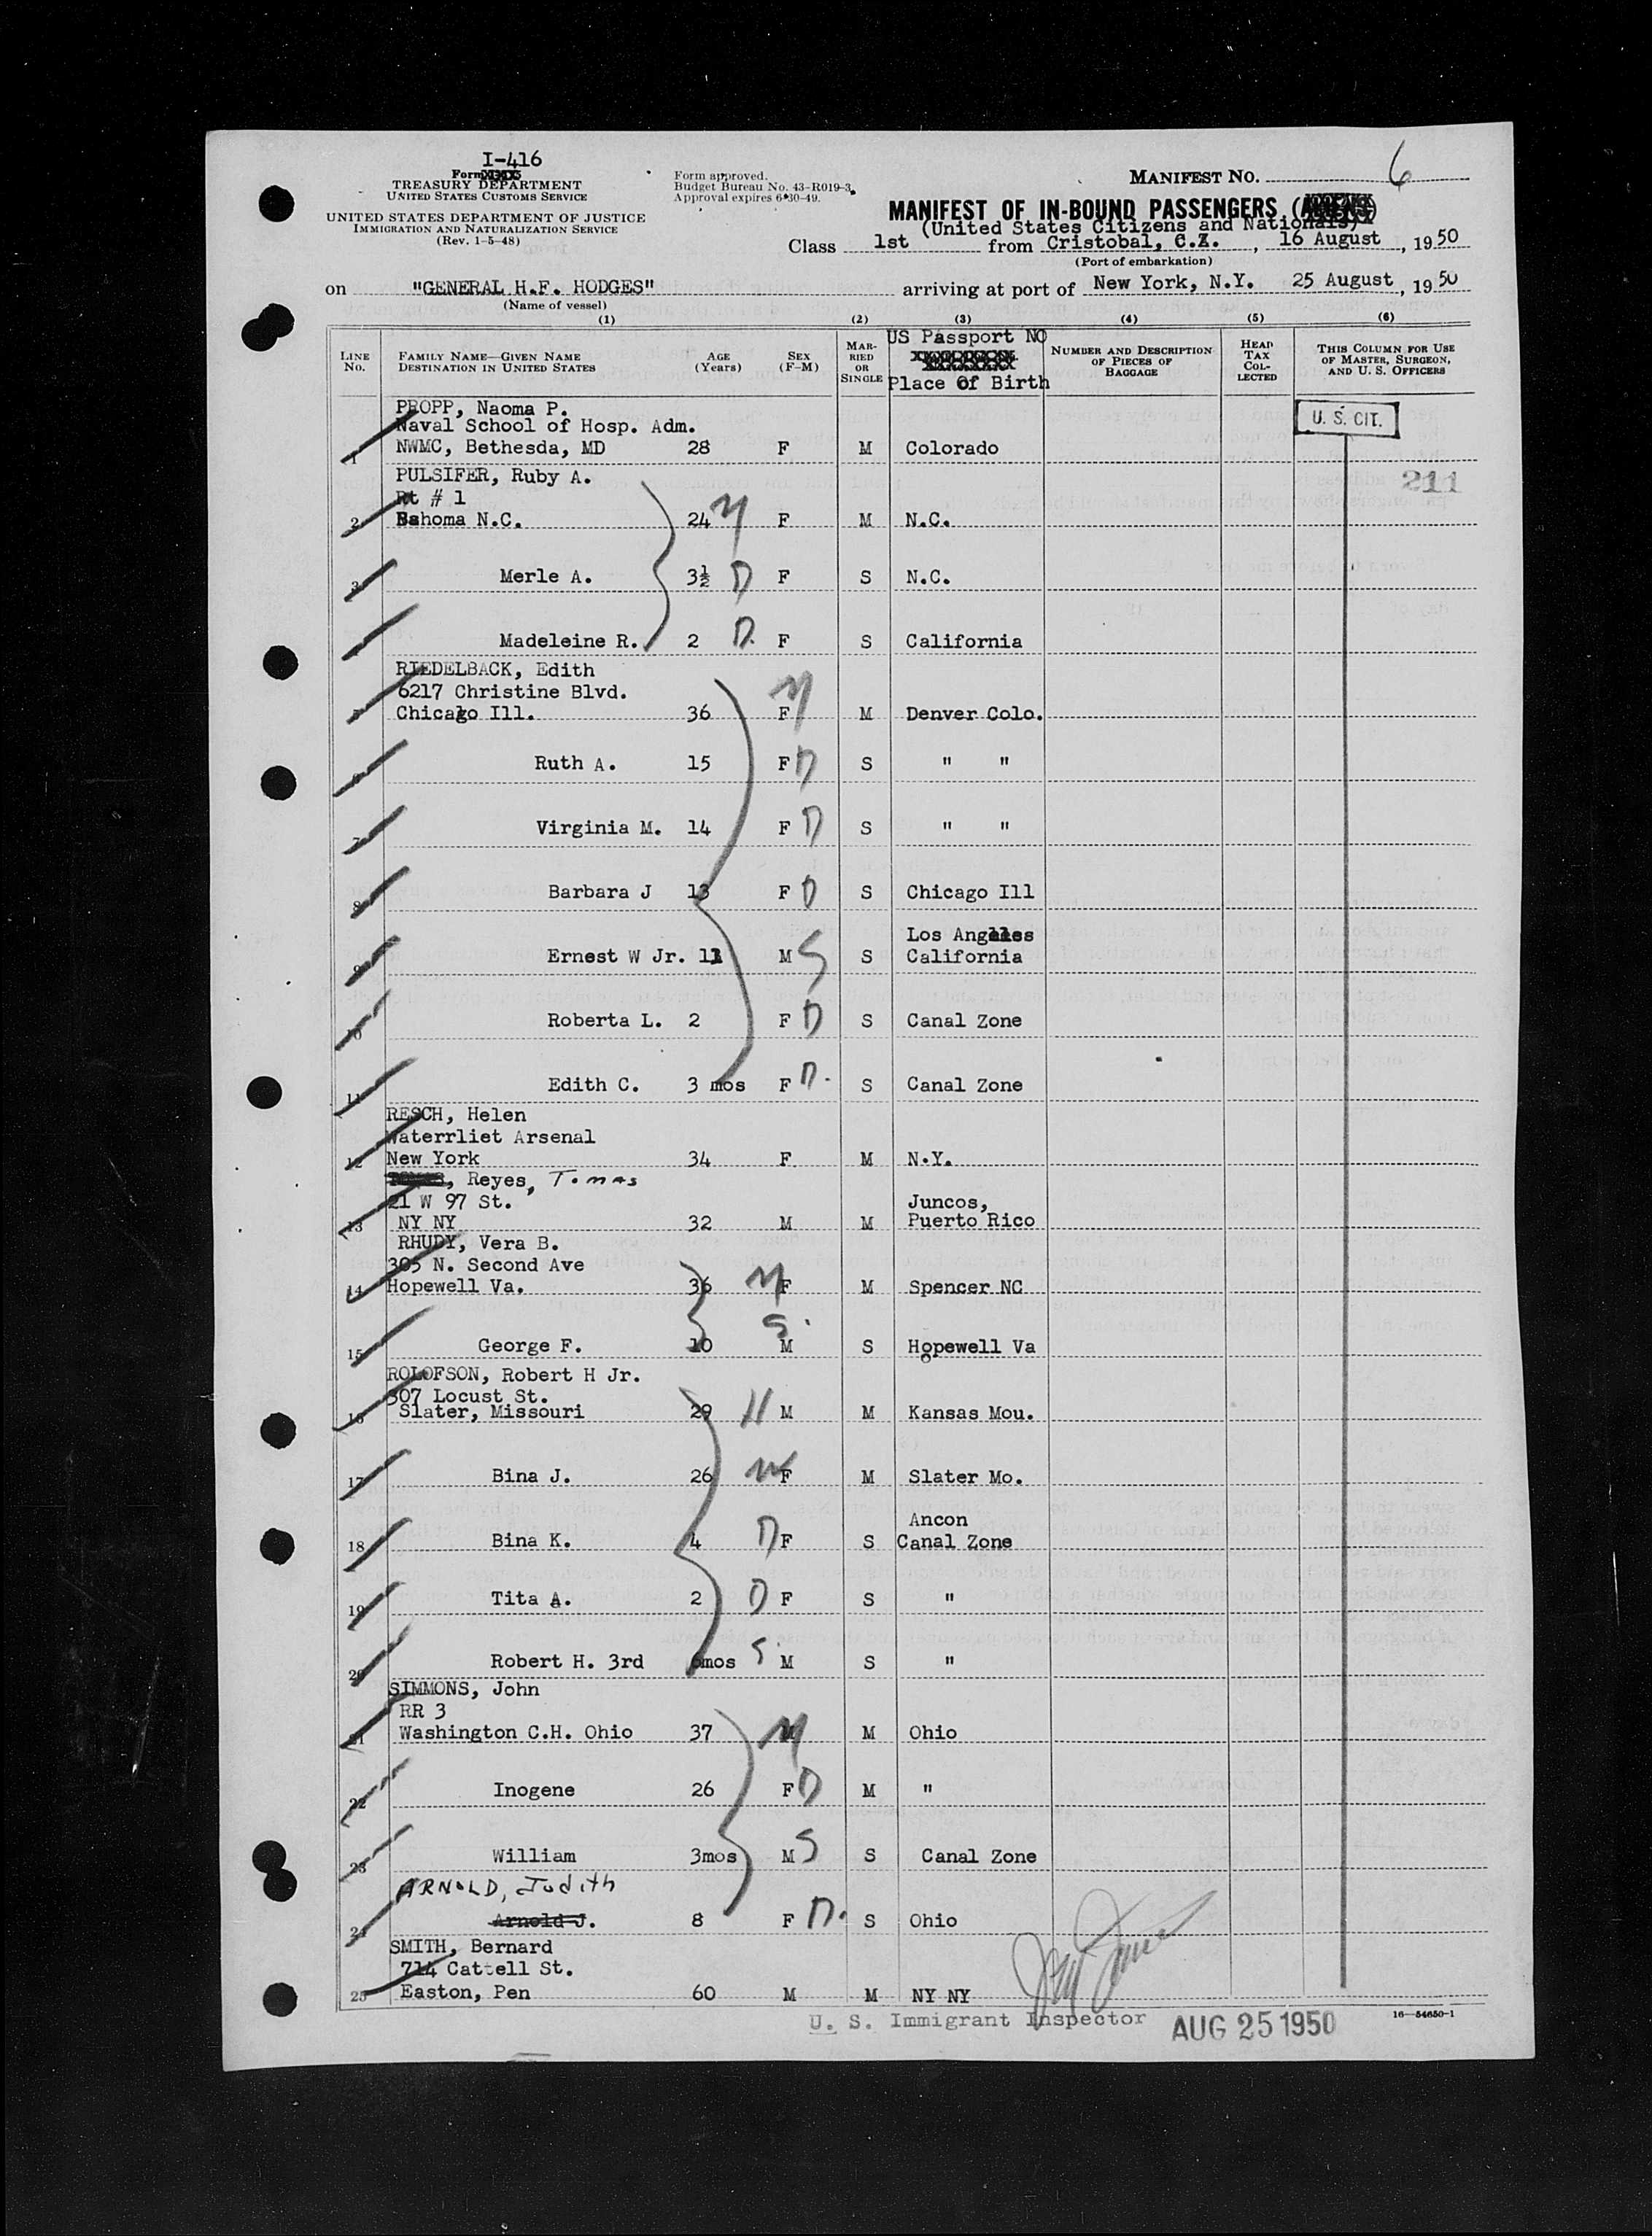 I-416
Form
TREASURY DEPARTMENT
UNITED STATES CUSTOMS SERVICE
UNITED STATES DEPARTMENT OF JUSTICE
IMMIGRATION AND NATURALIZATION SERVICE
(Rev. 1-5-48)
Form approved.
Budget Bureau No. 43-R019-3.
Approval expires 6-30-49.
MANIFEST NO. 6
MANIFEST OF IN-BOUND PASSENGERS
(United States Citizens and Nationals)
Class 1st from Cristobal, C.Z., 16 August, 1950
(Port of embarkation)
on "GENERAL H.F. HODGES" arriving at port of New York, N.Y. 25 August, 1950
(Name of vessel)
(1) (2) (3) (4) (5) (6)
LINE No.
FAMILY NAME—GIVEN NAME
DESTINATION IN UNITED STATES
AGE (Years)
SEX (F-M)
MARRIED OR SINGLE
US Passport NO
Place Of Birth
NUMBER AND DESCRIPTION OF PIECES OF BAGGAGE
HEAD TAX COLLECTED
THIS COLUMN FOR USE OF MASTER, SURGEON, AND U. S. OFFICERS
U. S. CIT.
211
PROPP, Naoma P.
Naval School of Hosp. Adm.
1 NWMC, Bethesda, MD 28 F M Colorado
PULSIFER, Ruby A.
Rt # 1
2 Bahoma N.C. 24 M F M N.C.
3 Merle A. 3½ D F S N.C.
4 Madeleine R. 2 D. F S California
RIEDELBACK, Edith
6217 Christine Blvd.
5 Chicago Ill. 36 M F M Denver Colo.
6 Ruth A. 15 F D S " "
7 Virginia M. 14 F D S " "
8 Barbara J 13 F D S Chicago Ill
Los Angeles
9 Ernest W Jr. 11 M S S California
10 Roberta L. 2 F D S Canal Zone
11 Edith C. 3 mos F D. S Canal Zone
RESCH, Helen
Waterrliet Arsenal
12 New York 34 F M N.Y.
, Reyes, Tomas
21 W 97 St. Juncos,
13 NY NY 32 M M Puerto Rico
RHUDY, Vera B.
305 N. Second Ave
14 Hopewell Va. 36 M F M Spencer NC
15 George F. 10 S. M S Hopewell Va
ROLOFSON, Robert H Jr.
307 Locust St.
16 Slater, Missouri 29 H M M Kansas Mou.
17 Bina J. 26 W F M Slater Mo.
Ancon
18 Bina K. 4 D F S Canal Zone
19 Tita A. 2 D F S "
20 Robert H. 3rd 6mos S. M S "
SIMMONS, John
RR 3
21 Washington C.H. Ohio 37 M M Ohio
22 Inogene 26 F D M "
23 William 3mos M S S Canal Zone
ARNOLD, Judith
24 Arnold J. 8 F D. S Ohio
SMITH, Bernard
714 Cattell St.
25 Easton, Pen 60 M M NY NY
U. S. Immigrant Inspector AUG 25 1950
16—54650-1